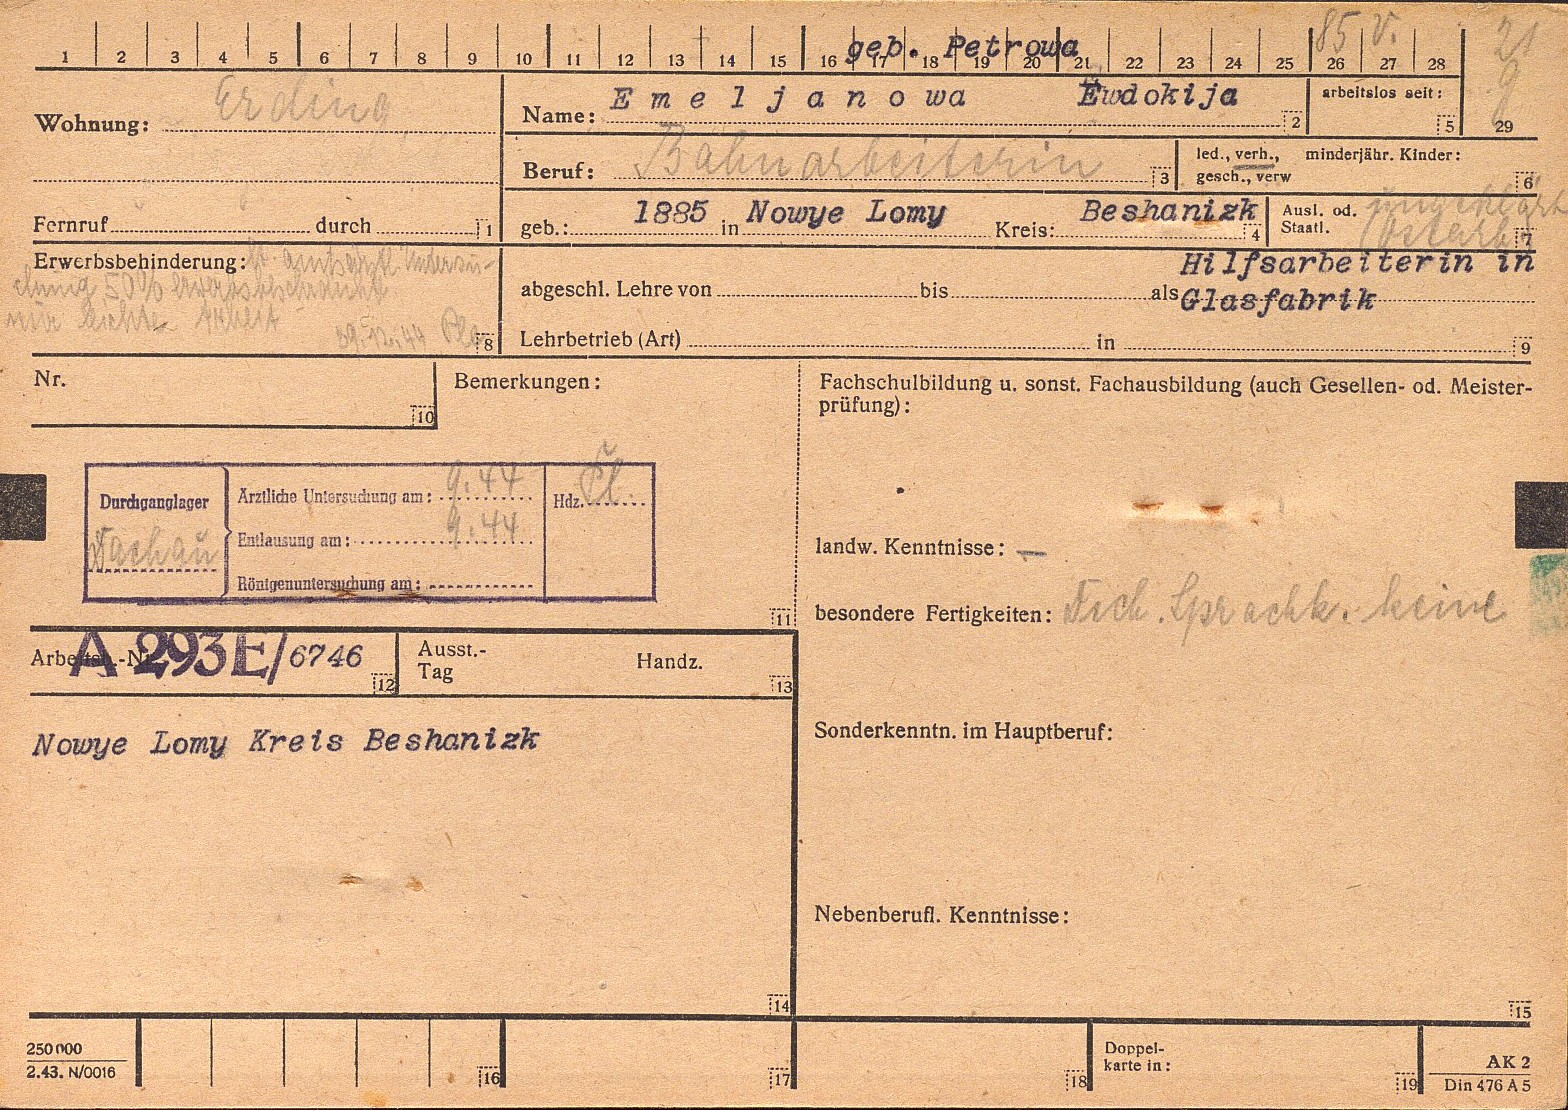 1 2 3 4 5 6 7 8 9 10 11 12 13 14 15 16 17 18 19 20 21 22 23 24 25 26 27 28
geb. Petrowa
85 V.
21
9
29
Wohnung: Erding
Name: Emeljanowa Ewdokija 2
arbeitslos seit: 5
Beruf: Bahnarbeiterin 3
led., verh., minderjähr. Kinder:
gesch., verw 6
Fernruf durch 1
geb.: 1885 in Nowye Lomy Kreis: Beshanizk 4
Ausl. od. ungeklärt
Staatl. Ostarb 7
Erwerbsbehinderung: lt. amtsärztl. Untersu-
chung 50% erwerbsbeschränkt
nur leichte Arbeit
12.44 8
abgeschl. Lehre von bis als Hilfsarbeiterin in
Glasfabrik
Lehrbetrieb (Art) in 9
Nr. 10
Bemerkungen:
Durchganglager
Dachau
Ärztliche Untersuchung am: 9.44
Entlausung am: 9.44
Röntgenuntersuchung am:
Hdz. Pl.
11
Fachschulbildung u. sonst. Fachausbildung (auch Gesellen- od. Meister-
prüfung):
landw. Kenntnisse: —
besondere Fertigkeiten: Dtch. Sprachk. keine
Arbeitsb.-Nr. A 293E/6746 12
Ausst.-
Tag
Handz. 13
Nowye Lomy Kreis Beshanizk
14
Sonderkenntn. im Hauptberuf:
Nebenberufl. Kenntnisse:
15
250000
2.43. N/0016
16
17
18
Doppel-
karte in:
19
AK 2
Din 476 A 5